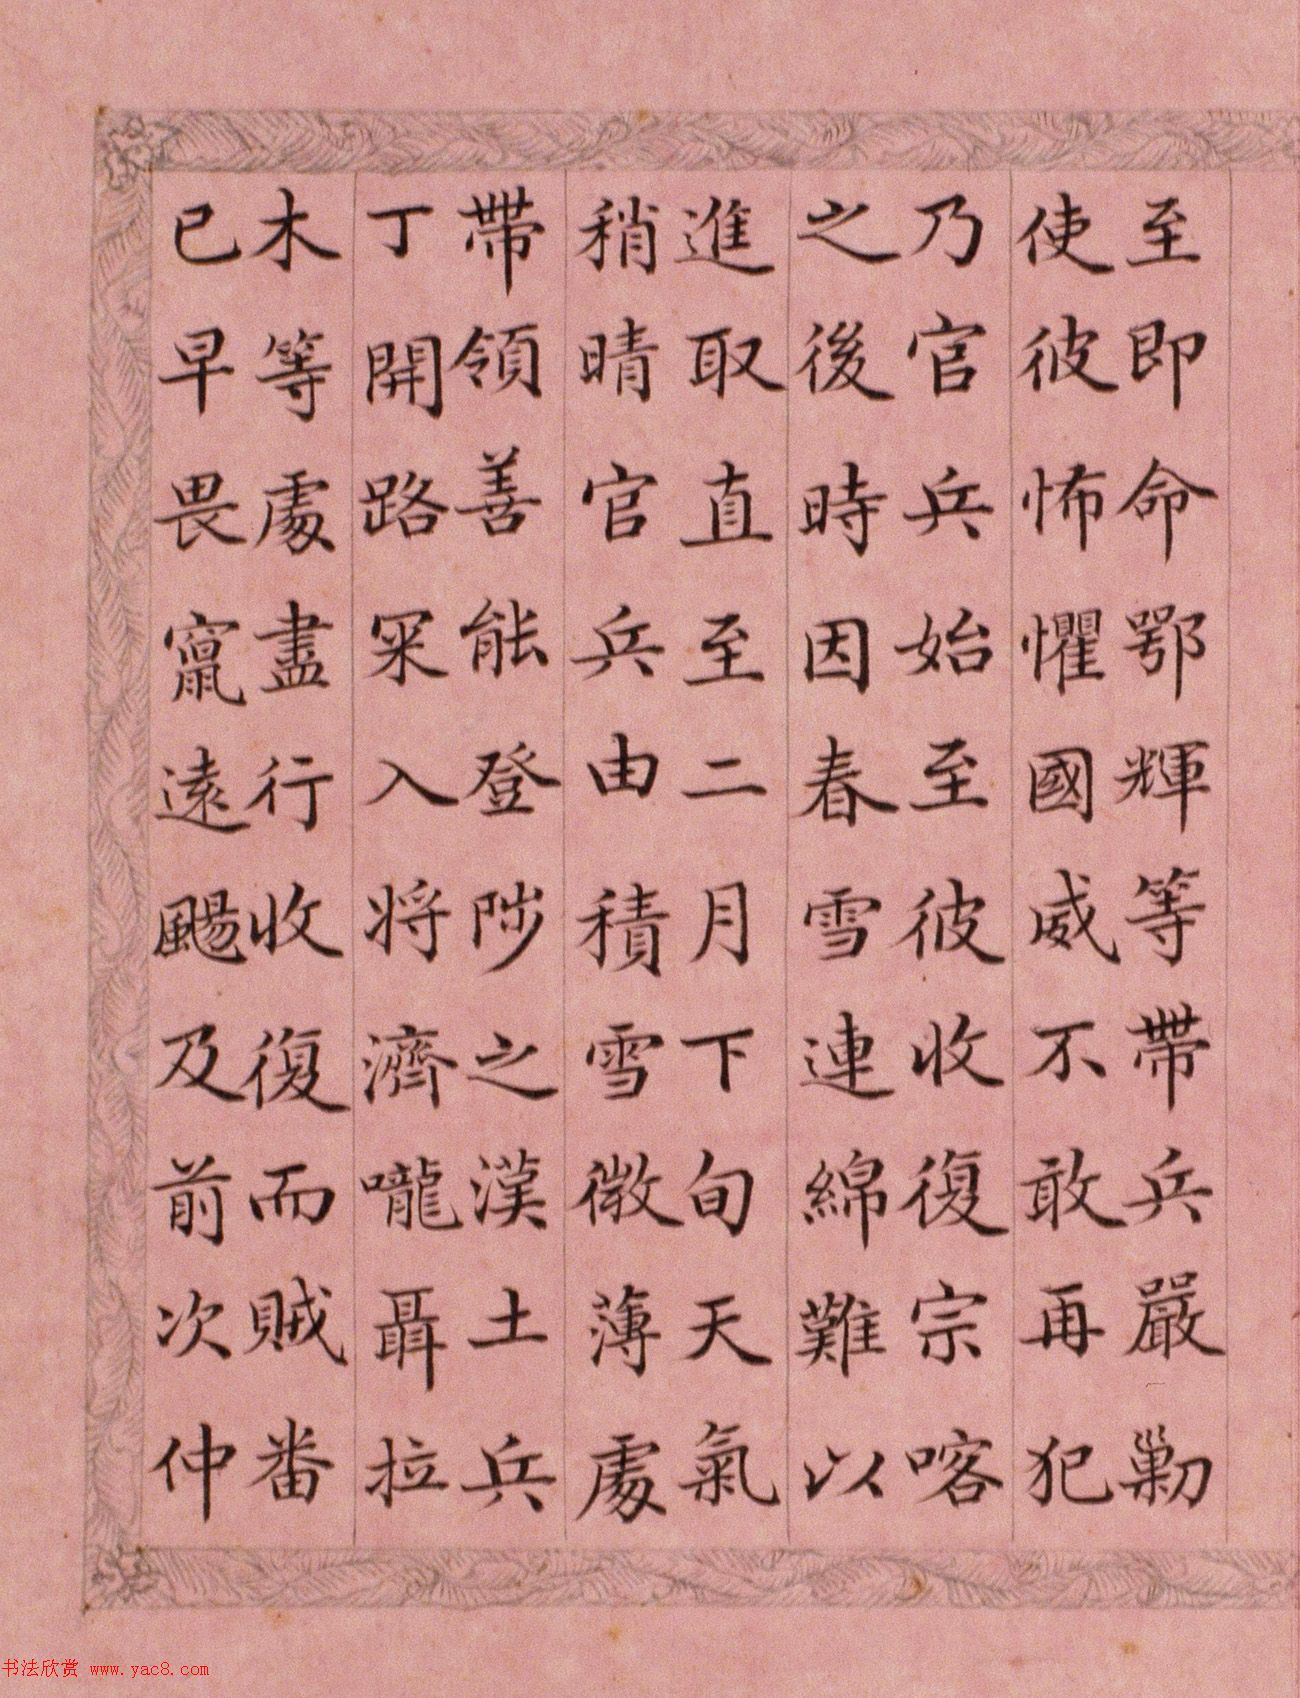 至即命鄂輝等帶兵嚴勦
使彼怖懼國威不敢再犯
乃官兵始至彼收復宗喀
之後時因春雪連綿難以
進取直至二月下旬天氣
稍晴官兵由積雪微薄處
帶領善能登陟之漢土兵
丁開路罙入將濟嚨聶拉
木等處盡行收復而賊番
已早畏竄遠颺及前次仲
书法欣赏 www.yac8.com